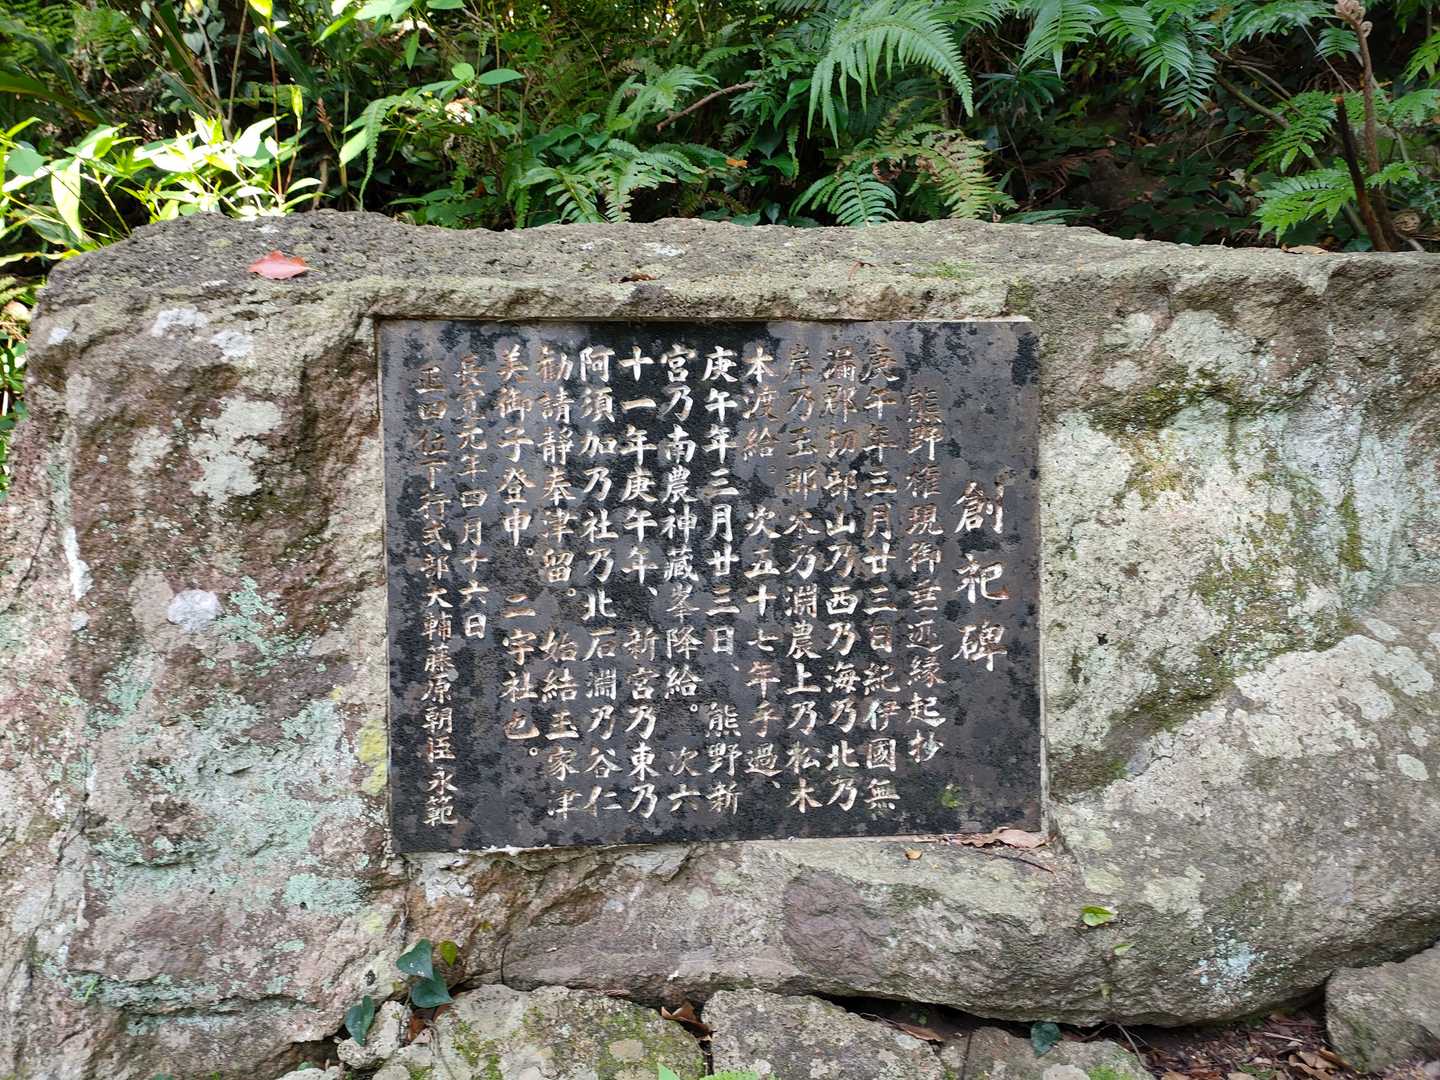 創祀碑
熊野権現御垂迹縁起抄
庚午年三月廿三日紀伊國無
漏郡切部山乃西乃海乃北乃
岸乃玉那木乃淵農上乃松木
本渡給。次五十七年乎過、
庚午年三月廿三日、熊野新
宮乃南農神藏峯降給。次六
十一年庚午年、新宮乃東乃
阿須加乃社乃北石淵乃谷仁
勧請靜奉津留。始結玉家津
美御子登申。二宇社也。
長寛元年四月十六日
正四位下行式部大輔藤原朝臣永範